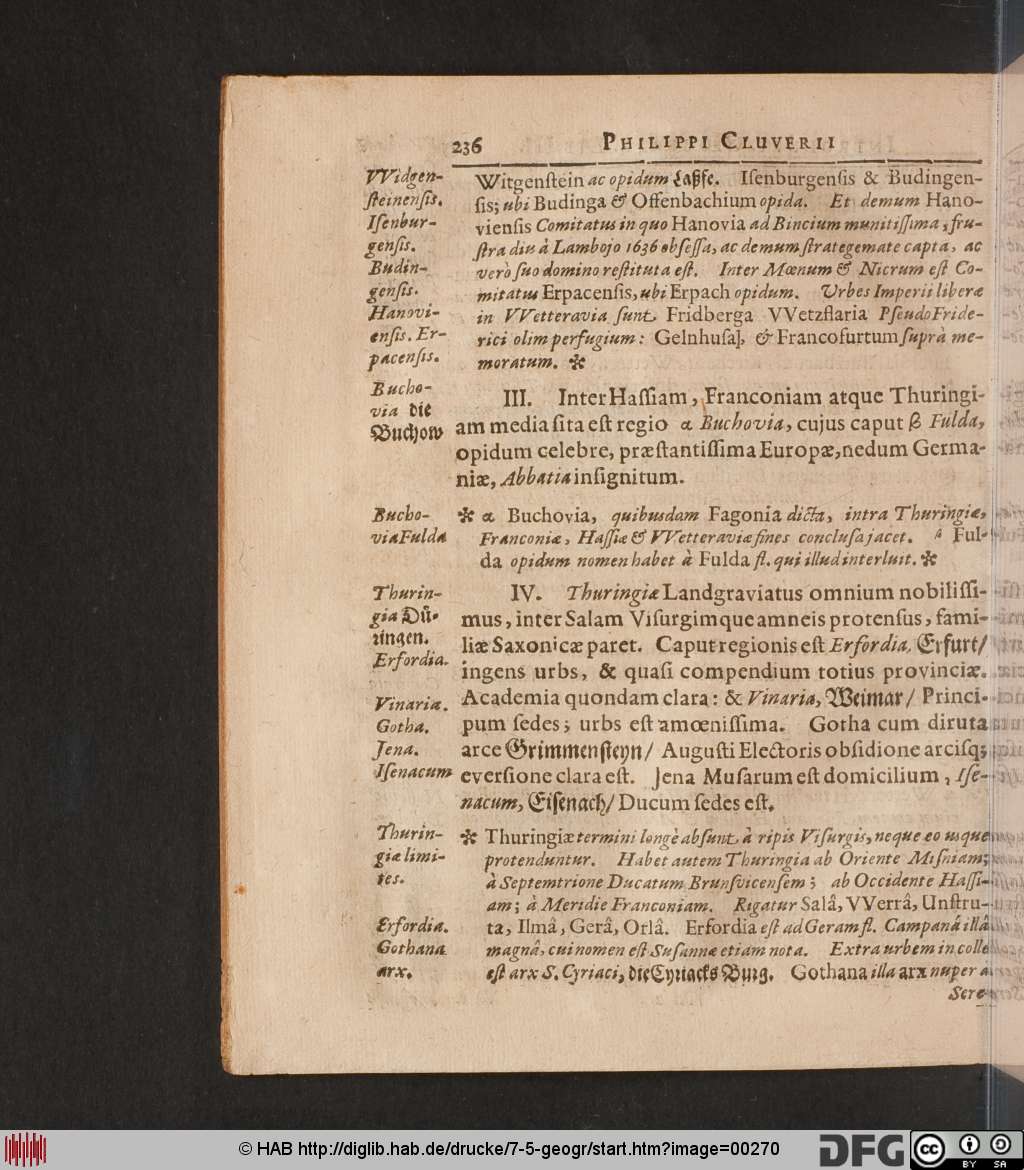 236 PHILIPPI CLUVERII
VVidgen-
ſteinenſis.
Iſenbur-
genſis.
Budin-
genſis.
Hanovi-
enſis. Er-
pacenſis.
Witgenſtein ac opidum Laßſe. Iſenburgenſis & Budingen-
ſis; ubi Budinga & Offenbachium opida. Et demum Hano-
vienſis Comitatus in quo Hanovia ad Bincium munitiſſima, fru-
ſtra diu à Lambojo 1636 obſeſſa, ac demum ſtrategemate capta, ac
verò ſuo domino reſtituta eſt. Inter Mœnum & Nicrum eſt Co-
mitatus Erpacenſis, ubi Erpach opidum. Urbes Imperii liberæ
in VVetteravia ſunt Fridberga VVetzflaria PſeudoFride-
rici olim perfugium: Gelnhuſa], & Francofurtum ſuprà me-
moratum. ✻
Bucho-
via die
Buchow
III. Inter Haſſiam, Franconiam atque Thuringi-
am media ſita eſt regio α Buchovia, cujus caput β Fulda,
opidum celebre, præſtantiſſima Europæ, nedum Germa-
niæ, Abbatia inſignitum.
Bucho-
via Fulda
✻ α Buchovia, quibusdam Fagonia dicta, intra Thuringiæ,
Franconiæ, Haſſiæ & VVetteraviæ fines concluſa jacet. β Ful-
da opidum nomen habet à Fulda fl. qui illud interluit. ✻
Thurin-
gia Dů-
ringen.
Erfordia.
Vinaria.
Gotha.
Jena.
Iſenacum
IV. Thuringiæ Landgraviatus omnium nobiliſſi-
mus, inter Salam Viſurgimque amneis protenſus, fami-
liæ Saxonicæ paret. Caput regionis eſt Erfordia, Erfurt/
ingens urbs, & quaſi compendium totius provinciæ.
Academia quondam clara: & Vinaria, Weimar/ Princi-
pum ſedes; urbs eſt amœniſſima. Gotha cum diruta
arce Grimmenſteyn/ Auguſti Electoris obſidione arciſq;
everſione clara eſt. Jena Muſarum eſt domicilium, Iſe-
nacum, Eiſenach/ Ducum ſedes eſt.
Thurin-
giæ limi-
tes.
Erfordia.
Gothana
arx.
✻ Thuringiæ termini longè abſunt à ripis Viſurgis, neque eo usque
protenduntur. Habet autem Thuringia ab Oriente Miſniam;
à Septemtrione Ducatum Brunſvicenſem; ab Occidente Haſſi-
am; à Meridie Franconiam. Rigatur Salâ, VVerrâ, Unſtru-
ta, Ilmâ, Gerâ, Orlâ. Erfordia eſt ad Geram fl. Campanâ illâ
magnâ, cui nomen eſt Suſannæ etiam nota. Extra urbem in colle
eſt arx S. Cyriaci, die Cyriacks Burg. Gothana illa arx nuper a
Sere-
© HAB http://diglib.hab.de/drucke/7-5-geogr/start.htm?image=00270
DFG
cc
BY SA